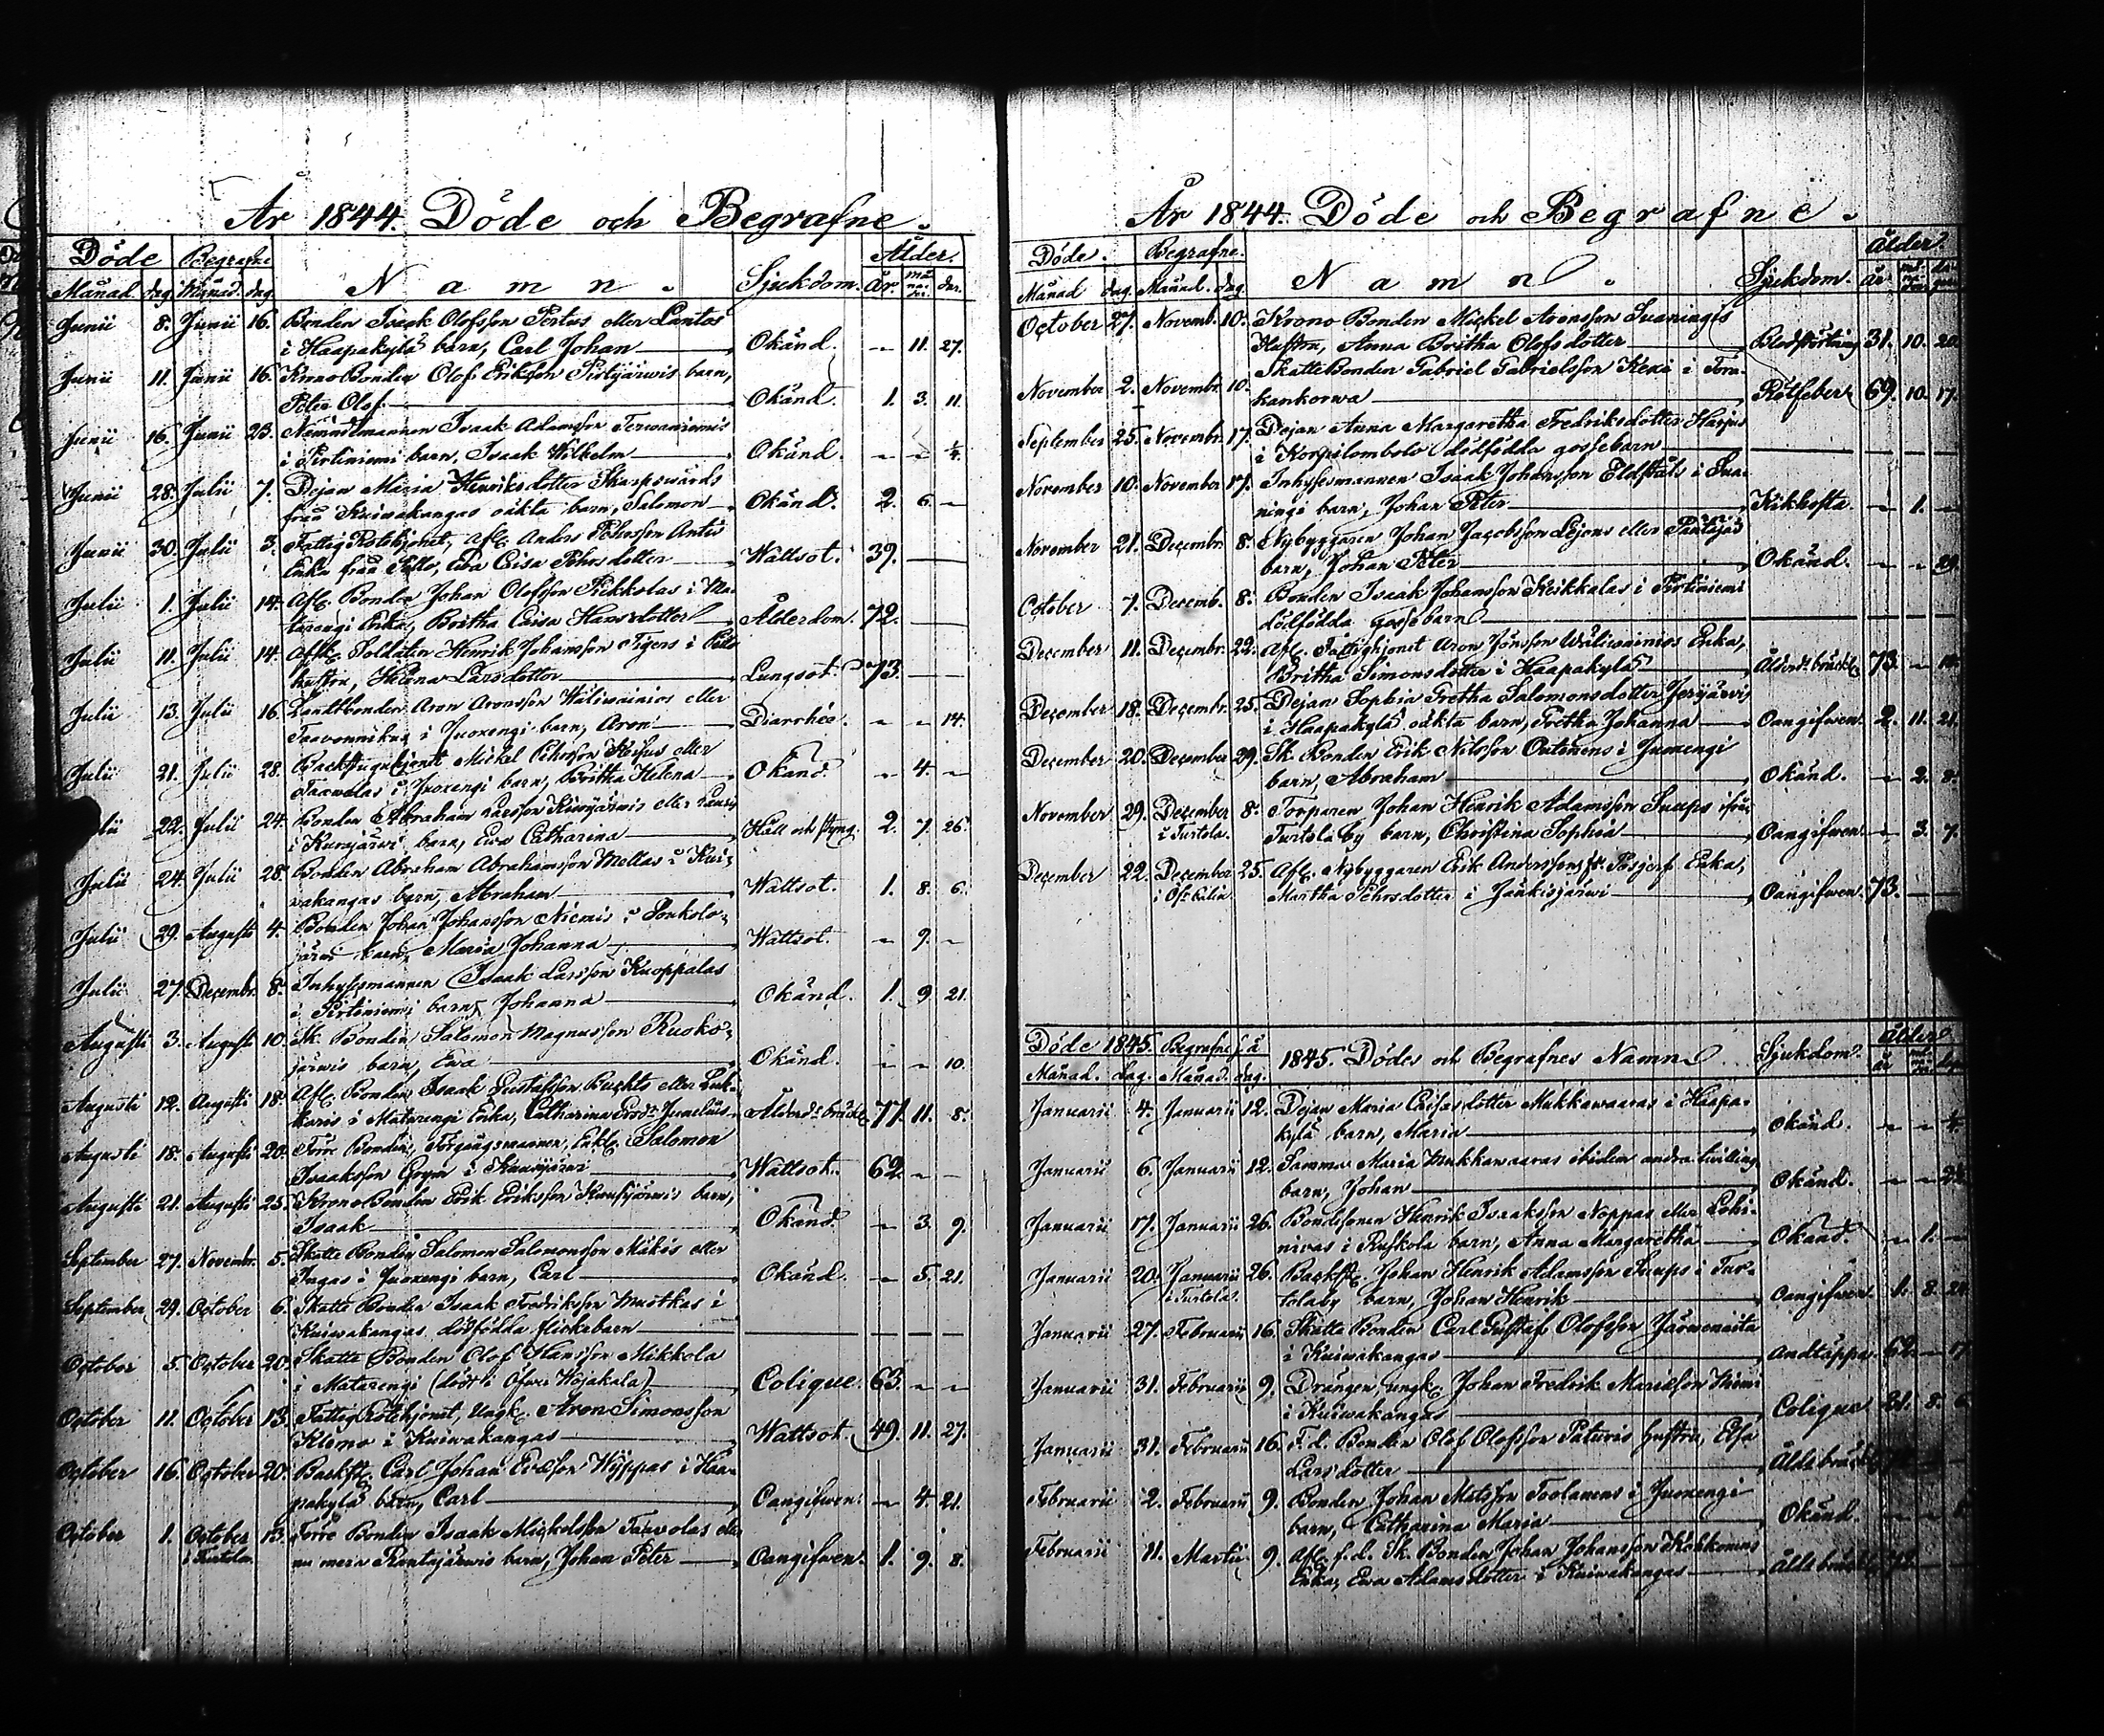 År 1844. Döde och Begrafne.
Döde Begrafne Namn. Sjukdom. Ålder.
Månad. dag. Månad. dag. År. måna der. dar.
Junii 8. Junii 16. Bonden Isaak Olofsson Pertus eller Lantos
i Haapakylä barn, Carl Johan Okänd. - 11. 27.
Junii 11. Junii 16. Krono Bonden Olof Eriksson Pirtijärwis barn,
Peter Olof Okänd. 1. 3. 11.
Junii 16. Junii 23. Nämndemannen Isaak Adamsson
i Pirtiniemi barn, Isaak Wilhelm Okänd. - - ¼.
Junii 28. Julii 7. Dejan Maria Henriksdotter Skarpswärds
från Kuiwakangas oäkta barn, Salomon Okänd. 2. 6. -
Junii 30. Julii 3. Fattig Rotehjonet, Afl. Anders Pehrsson Antis
Enka från Pello, Ewa Caisa Pehrsdotter Wattsot. 39.
Julii 1. Julii 14. Afl. Bonden Johan Olofsson Pekkolas i Ma-
tarengi Enka, Britha Caisa Hansdotter Ålderdom. 72.
Julii 11. Julii 14. Afsk. Soldaten Henrik Johansson Tigers i Pello
hustru, Helena Larsdotter Lungsot. 73.
Julii 13. Julii 16. Landtbonden Aron Aronsson Wäliwainios eller
i Juoxengi barn, Aron Diarrhée. - - 14.
Julii 21. Julii 28. Backstuguhjonet Michel Pehrsson eller
Taawolas i Juoxengi barn, Britha Helena Okänd. - 4. -
Julii 22. Julii 24. Bonden Abraham Larsson Kuusijärwis eller
i Kuusijärwi barn, Ewa Catharina Håll och styng. 2. 7. 26.
Julii 24. Julii 28. Bonden Abraham Abrahamsson Mellas i Kui-
wakangas barn, Abraham Wattsot. 1. 8. 6.
Julii 29. Augusti 4. Bonden Johan Johansson Niemis i Poukolo-
järwi barn, Maria Johanna Wattsot. - 9. -
Julii 27. Decembr. 8. Inhysesmannen Isaak Larsson Kuoppalas
i Pirtiniemi barn, Johanna Okänd. 1. 9. 21.
Augusti 3. Augusti 10. Sk. Bonden Salomon Magnusson Ruoko-
järwis barn, Ewa Okänd. - - 10.
Augusti 12. Augusti 18. Afl. Bonden Isaak Gustafsson Buchts eller Luk-
karis i Matarengi Enka, Catharina Junelius Ålderd:s bräckl. 77. 11. 8.
Augusti 18. Augusti 20. Förre Bonden, Förgångsmannen, Enkl. Salomon
Isaaksson Grym i Kuusijärwi Wattsot. 62. - -
Augusti 21. Augusti 25. Krono Bonden Erik Eriksson Kuusijärwis barn,
Isaak Okänd. - 3. 9.
September 27. Novembr. 5. Skatte Bonden Salomon Salomonsson Mäkis eller
Ingas i Juoxengi barn, Carl Okänd. - 5. 21.
September 29. October 6. Skatte Bonden Isaak Fredriksson Muotkas i
Kuiwakangas dödfödda flickebarn
October 5. October 20. Skatte Bonden Olof Hansson Mikkola
i Matarengi (död i Öfwer Wojakala) Colique. 63. - -
October 11. October 13. Fattig Rotehjonet, Ungk. Aron Simonsson
Klemo i Kuiwakangas Wattsot. 49. 11. 27.
October 16. October 20. Backst. Carl Johan Evasson Wyppas i Haa-
pakylä barn, Carl Oangifwen. - 4. 21.
October 1. October 13. Förre Bonden Isaak Mickelsson Taavolas eller
i Turtola. nu mera Rantajärwis barn, Johan Peter Oangifwen. 1. 9. 8.
År 1844. Döde och Begrafne.
Döde. Begrafne. Namn. Sjukdom. Ålder.
Månad dag. Månad. dag. År
October 27. Novemb. 10. Krono Bonden Mickel Aronsson Svaningis
Hustru, Anna Britha Olofsdotter Blodstörtning 31. 10. 20.
November 2. Novembr. 10. Skatte Bonden Gabriel Gabrielsson Kexi i Torra-
kankorwa Rötfeber. 69. 10. 17.
September 25. Novembr. 17. Dejan Anna Margaretha Fredriksdotter Harjus
i Korpilombolo dödfödda gossebarn
November 10. November 17. Inhysesmannen Isaak Johansson Eldståls i Sva-
ningi barn, Johan Peter Kikhosta. - 1. -
November 21. Decembr. 8. Nybyggaren Johan Jacobsson Lejons eller
barn, Johan Peter Okänd. - - 29.
October 7. Decemb. 8. Bonden Isaak Johansson Keikkalas i Pirtiniemi
dödfödda gossebarn
December 11. Decembr. 22. Afl. Fattighjonet Aron Jönsson Wäliwainios Enka,
Britha Simonsdotter i Haapakylä Ålderd:s bräckl. 73. -
December 18. Decembr. 25. Dejan Sophia Gretha Salomonsdotter Jerijärwis
i Haapakylä oäkta barn, Gretha Johanna Oangifwen. 2. 11. 21.
December 20. December 29. Sk. Bonden Erik Nilsson Outinens i Juoxengi
barn, Abraham Okänd. - 2. 8.
November 29. December 8. Torparen Johan Henrik Adamsson Snaps ifrån
i Turtola. Turtola by barn, Christina Sophia Oangifwen. - 3. 7.
December 22. December 25. Afl. Nybyggaren Erik Andersson Enka,
Martha Pehrsdotter i Jänkisjärwi Oangifwen. 73.
Döde 1845. Begrafne s. å. 1845. Dödes och Begrafnes Namn. Sjukdom. Ålder
Månad. dag. Månad. dag. år
Januarii 4. Januarii 12. Dejan Maria Caisasdotter Mukkawaaras i Haapa-
kylä barn, Maria Okänd. - -
Januarii 6. Januarii 12. Samma Maria Mukkawaaras ibidem andra tvilling
barn, Johan Okänd. - -
Januarii 17. Januarii 26. Bondesonen Henrik Isaaksson Noppas eller Lohi-
nivas i Ruskola barn, Anna Margaretha Okänd. - 1. -
Januarii 20. Januarii 26. Backst. Johan Henrik Adamsson Snaps i Tur-
i Turtola. tolaby barn, Johan Henrik Oangifwen. 1. 8.
Januarii 27. Februarii 16. Skatte Bonden Carl Gustaf Olofsson
i Kuiwakangas Andtäppa. 62. - 17.
Januarii 31. Februarii 9. Drängen, ungk. Johan Fredrik Mariæson Niemi
i Kuiwakangas Colique 31. 8.
Januarii 31. Februarii 16. F. d. Bonden Olof Olofsson Paturis hustru, Elsa
Larsdotter Åldr.bräckl.
Februarii 2. Februarii 9. Bonden Johan Matsson Toolanens i Juoxengi
barn, Catharina Maria Okänd. - -
Februarii 11. Martii 9. Afl. f. d. Sk. Bonden Johan Johansson
Enka, Ewa Adamsdotter i Kuiwakangas Åldr.bräckl.